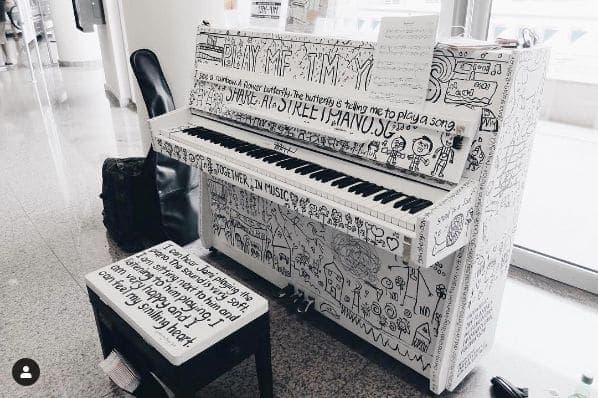 PLAY ME I'M Y
see a rainbow & flower butterfly. The butterfly is telling me to play a song.
SHARE AT STREETPIANO.SG
TOGETHER IN MUSIC
I can hear playing the
piano. The sound is very soft.
I am sitting next to him and
listening to him playing. I
am very happy and I
can feel my smiling heart.